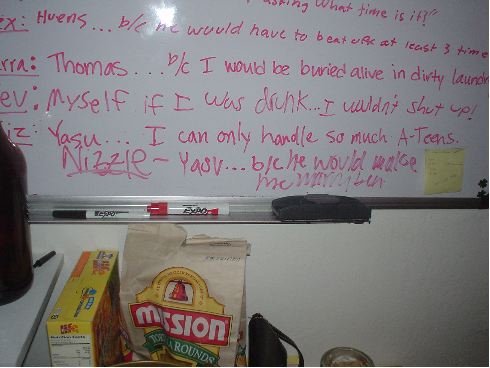 asking What time is it?"
ex: Huens... b/c he would have to beat off at least 3 time
rra: Thomas... b/c I would be buried alive in dirty laun
ev: Myself if I was drunk... I wouldn't shut up!
iz: Yasu... I can only handle so much A-Teens.
Nizzle - Yasu... b/c he would make
me marry
EXPO
EXPO
MISSION
ROUNDS